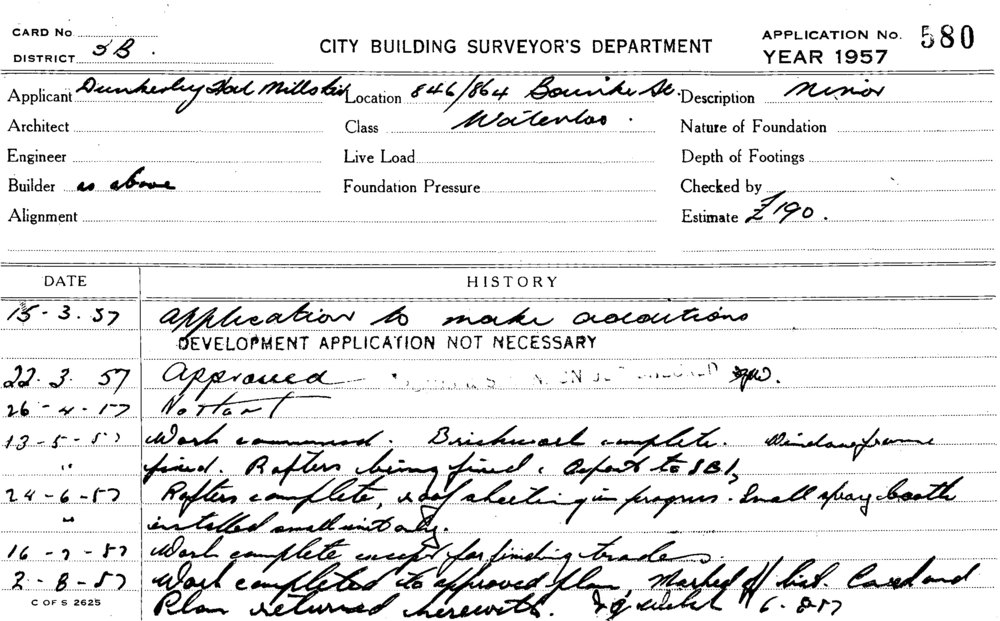 CARD No
DISTRICT 5B.
CITY BUILDING SURVEYOR'S DEPARTMENT
APPLICATION No. 580
YEAR 1957
Applicant Dunkerley Hat Mills Ltd Location 846/864 Bourke St. Description Minor
Architect Class Waterloo. Nature of Foundation
Engineer Live Load Depth of Footings
Builder as above Foundation Pressure Checked by
Alignment Estimate £190.
DATE HISTORY
15-3.57 Application to make additions
DEVELOPMENT APPLICATION NOT NECESSARY
22.3.57 Approved
26-4-57 No start
13-5-57 Work commenced. Brickwork complete. Window frame
" fixed. Rafters being fixed.
24-6-57 Rafters complete, roof sheeting in progress. Small spray booth
" installed small unit only.
16-7-57 Work complete except for finishing trades.
2-8-57 Work completed to approved plan, Marked off list. Card and
C OF S 2625 Plan returned herewith. 6-8-57